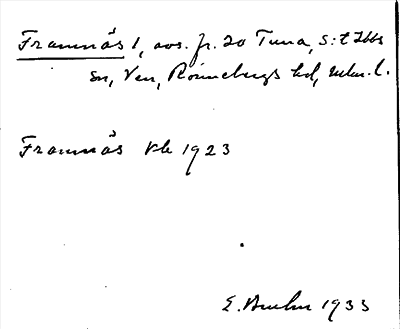 Framnäs 1, avs. fr. 20 Tuna, S:t Ibbs
sn, Ven, Rönnebergs hd, Mlm. l.
Framnäs Vk 1923
E. Bruhn 1933